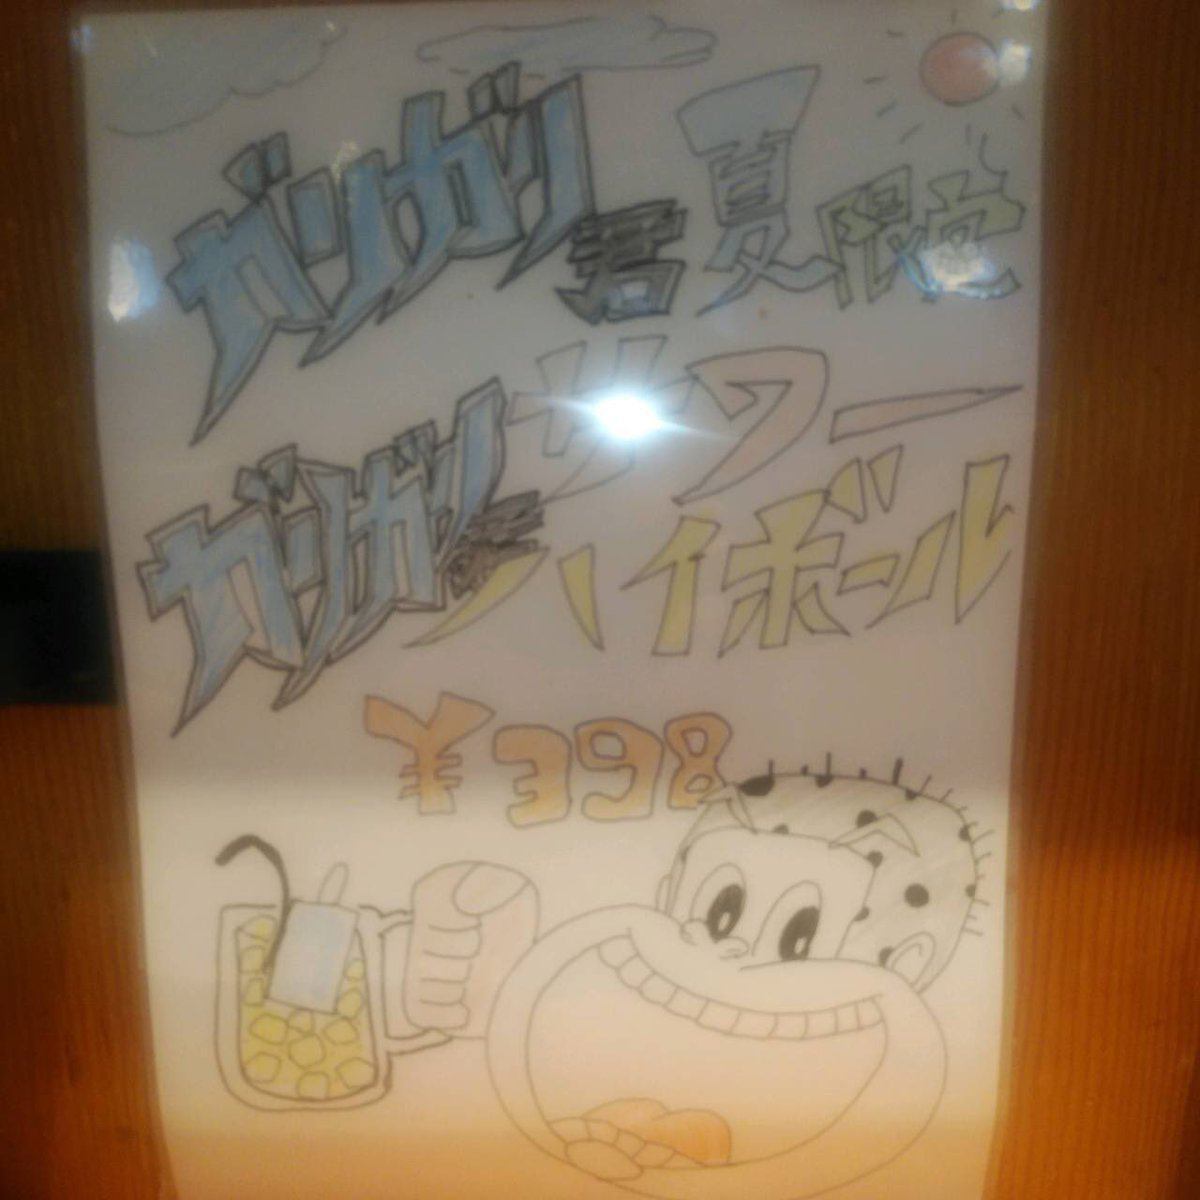 ガリガリ君 夏限定
サワー
ガリガリ君ハイボール
¥398